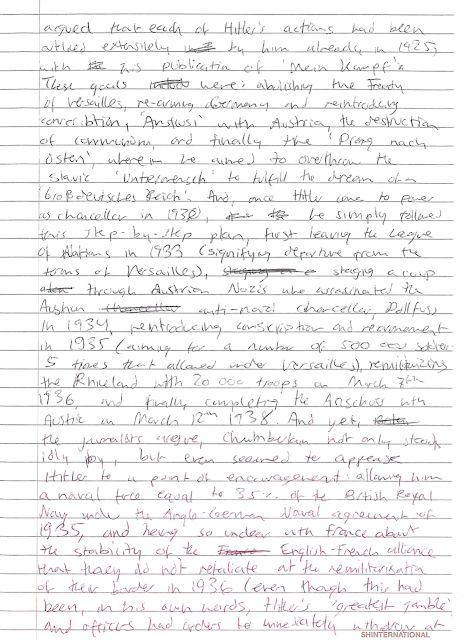 argued that each of Hitler's actions had been
outlined extensively by him already in 1925,
with his publication of 'Mein Kampf'.
These goals were: abolishing the Treaty
of Versailles, re-arming Germany and reintroducing
conscription, 'Anschluss' with Austria, the destruction
of communism, and finally the 'Drang nach
Osten', wherein he aimed to overthrow the
slavic 'Untermensch' to fulfill the dream of a
'Großdeutsches Reich'. And, once Hitler came to power
as chancellor in 193, he simply followed
this step-by-step plan, first leaving the League
of Nations in 1933 (signifying departure from the
terms of Versailles), staging a coup
through Austrian Nazis who assassinated the
Austrian anti-nazi chancellor, Dollfuss
in 1934, reintroducing conscription and rearmament
in 1935 (aiming for a number of 500 000 soldiers
5 times that allowed under Versailles), remilitarizing
the Rhineland with 20 000 troops on March 7th
1936, and finally completing the Anschluss with
Austria on March 12th 1938. And yet,
the journalists argue, Chamberlain not only stood
idly by, but even seemed to appease
Hitler to a point of encouragement: allowing him
a naval force equal to 35% of the British Royal
Navy under the Anglo-German Naval agreement of
1935, and being so unclear with France about
the stability of the English-French alliance
that they did not retaliate at the remilitarisation
of their border in 1936 (even though this had
been, in his own words, Hitler's 'greatest gamble'
and officers had orders to immediately withdraw at
SHINTERNATIONAL